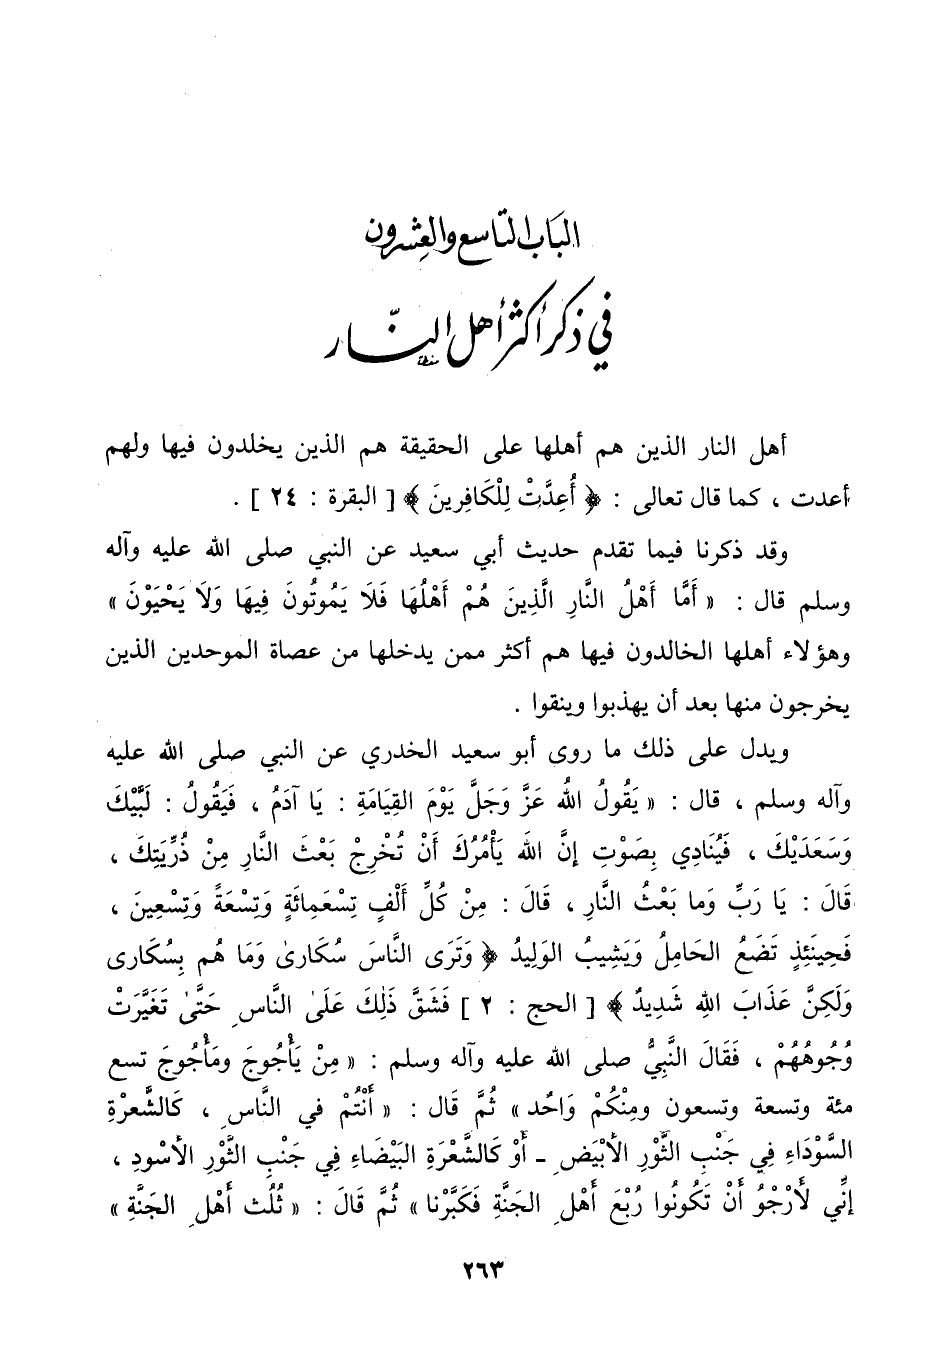 الباب التاسع والعشرون
في ذكر أكثر أهل النّار
أهل النار الذين هم أهلها على الحقيقة هم الذين يخلدون فيها ولهم
أعدت ، كما قال تعالى : ﴿ أُعِدَّتْ لِلْكَافِرِينَ ﴾ [ البقرة : ٢٤ ] .
وقد ذكرنا فيما تقدم حديث أبي سعيد عن النبي صلى الله عليه وآله
وسلم قال : « أَمَّا أَهْلُ النَّارِ الَّذِينَ هُمْ أَهْلُهَا فَلَا يَمُوتُونَ فِيهَا وَلَا يَحْيَوْنَ »
وهؤلاء أهلها الخالدون فيها هم أكثر ممن يدخلها من عصاة الموحدين الذين
يخرجون منها بعد أن يهذبوا وينقوا .
ويدل على ذلك ما روى أبو سعيد الخدري عن النبي صلى الله عليه
وآله وسلم ، قال : « يَقُولُ اللهُ عَزَّ وَجَلَّ يَوْمَ القِيَامَةِ : يَا آدَمُ ، فَيَقُولُ : لَبَّيْكَ
وَسَعَدَيْكَ ، فَيُنَادِي بِصَوْتِ إنَّ اللهَ يَأْمُرُكَ أَنْ تُخْرِجْ بَعْثَ النَّارِ مِنْ ذُرِّيَتِكَ ،
قَالَ : يَا رَبِّ وَما بَعْثُ النَّارِ ، قَالَ : مِنْ كُلِّ أَلْفٍ تِسْعَمِائَةٍ وَتِسْعَةً وَتِسْعِينَ ،
فَحِينَئِذٍ تَضَعُ الحَامِلُ وَيَشِيبُ الوَلِيدُ ﴿ وَتَرَى النَّاسَ سُكَارىٰ وَمَا هُم بِسُكَارى
وَلَكِنَّ عَذَابَ اللهِ شَدِيدٌ ﴾ [ الحج : ٢ ] فَشَقَّ ذَلِكَ عَلَىٰ النَّاسِ حَتَّىٰ تَغَيَّرَتْ
وُجُوهُهُمْ ، فَقَالَ النَّبِيُّ صلى الله عليه وآله وسلم : « مِنْ يَأْجُوجَ ومَأْجُوجَ تسع
مئة وتسعة وتسعون ومِنْكُمْ وَاحُد » ثُمَّ قَال : « أَنْتُمْ في النَّاسِ ، كَالشَّعرْةِ
السَّوْدَاءِ فِي جَنْبِ الثَّوْرِ الأَبْيَضِ ـ أَوْ كَالشَّعْرَةِ البَيْضَاءِ فِي جَنْبِ الثَّوْرِ الأَسْودِ ،
إنِّي لأَرْجُو أَنْ تَكُونُوا رُبْعَ أَهْلِ الجَنَّةِ فَكَبَّرْنا » ثُمَّ قَالَ : « ثُلُث أَهْلِ الجَنَّةِ »
٢٦٣